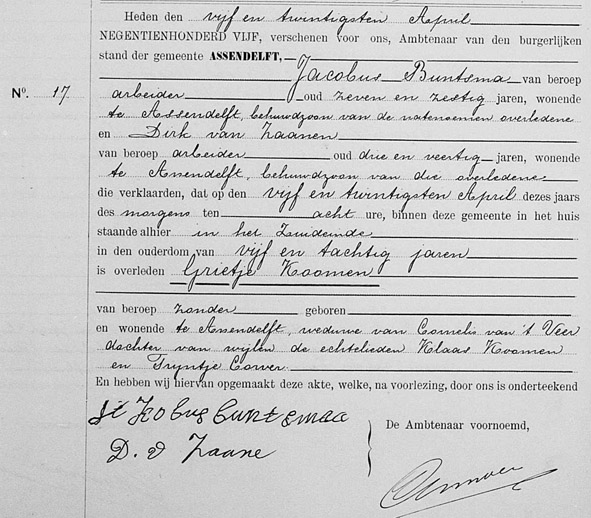 Heden den vijf en twintigsten April
NEGENTIENHONDERD VIJF, verschenen voor ons, Ambtenaar van den burgerlijken
stand der gemeente ASSENDELFT, Jacobus Buntsma van beroep
No. 17 arbeider oud zeven en zestig jaren, wonende
te Assendelft, behuwdzoon van de natenoemen overledene
en Dirk van Zaanen
van beroep arbeider oud drie en veertig jaren, wonende
te Assendelft, behuwdzoon van die overledene
die verklaarden, dat op den vijf en twintigsten April dezes jaars
des morgens ten acht ure, binnen deze gemeente in het huis
staande alhier in het Zuideinde
in den ouderdom van vijf en tachtig jaren
is overleden Grietje Koomen
van beroep zonder geboren
en wonende te Assendelft, weduwe van Cornelis van 't Veer
dochter van wijlen de echtelieden Klaas Koomen
en Trijntje Corver.
En hebben wij hiervan opgemaakt deze akte, welke, na voorlezing, door ons is onderteekend
De Ambtenaar voornoemd,
D. v Zaane